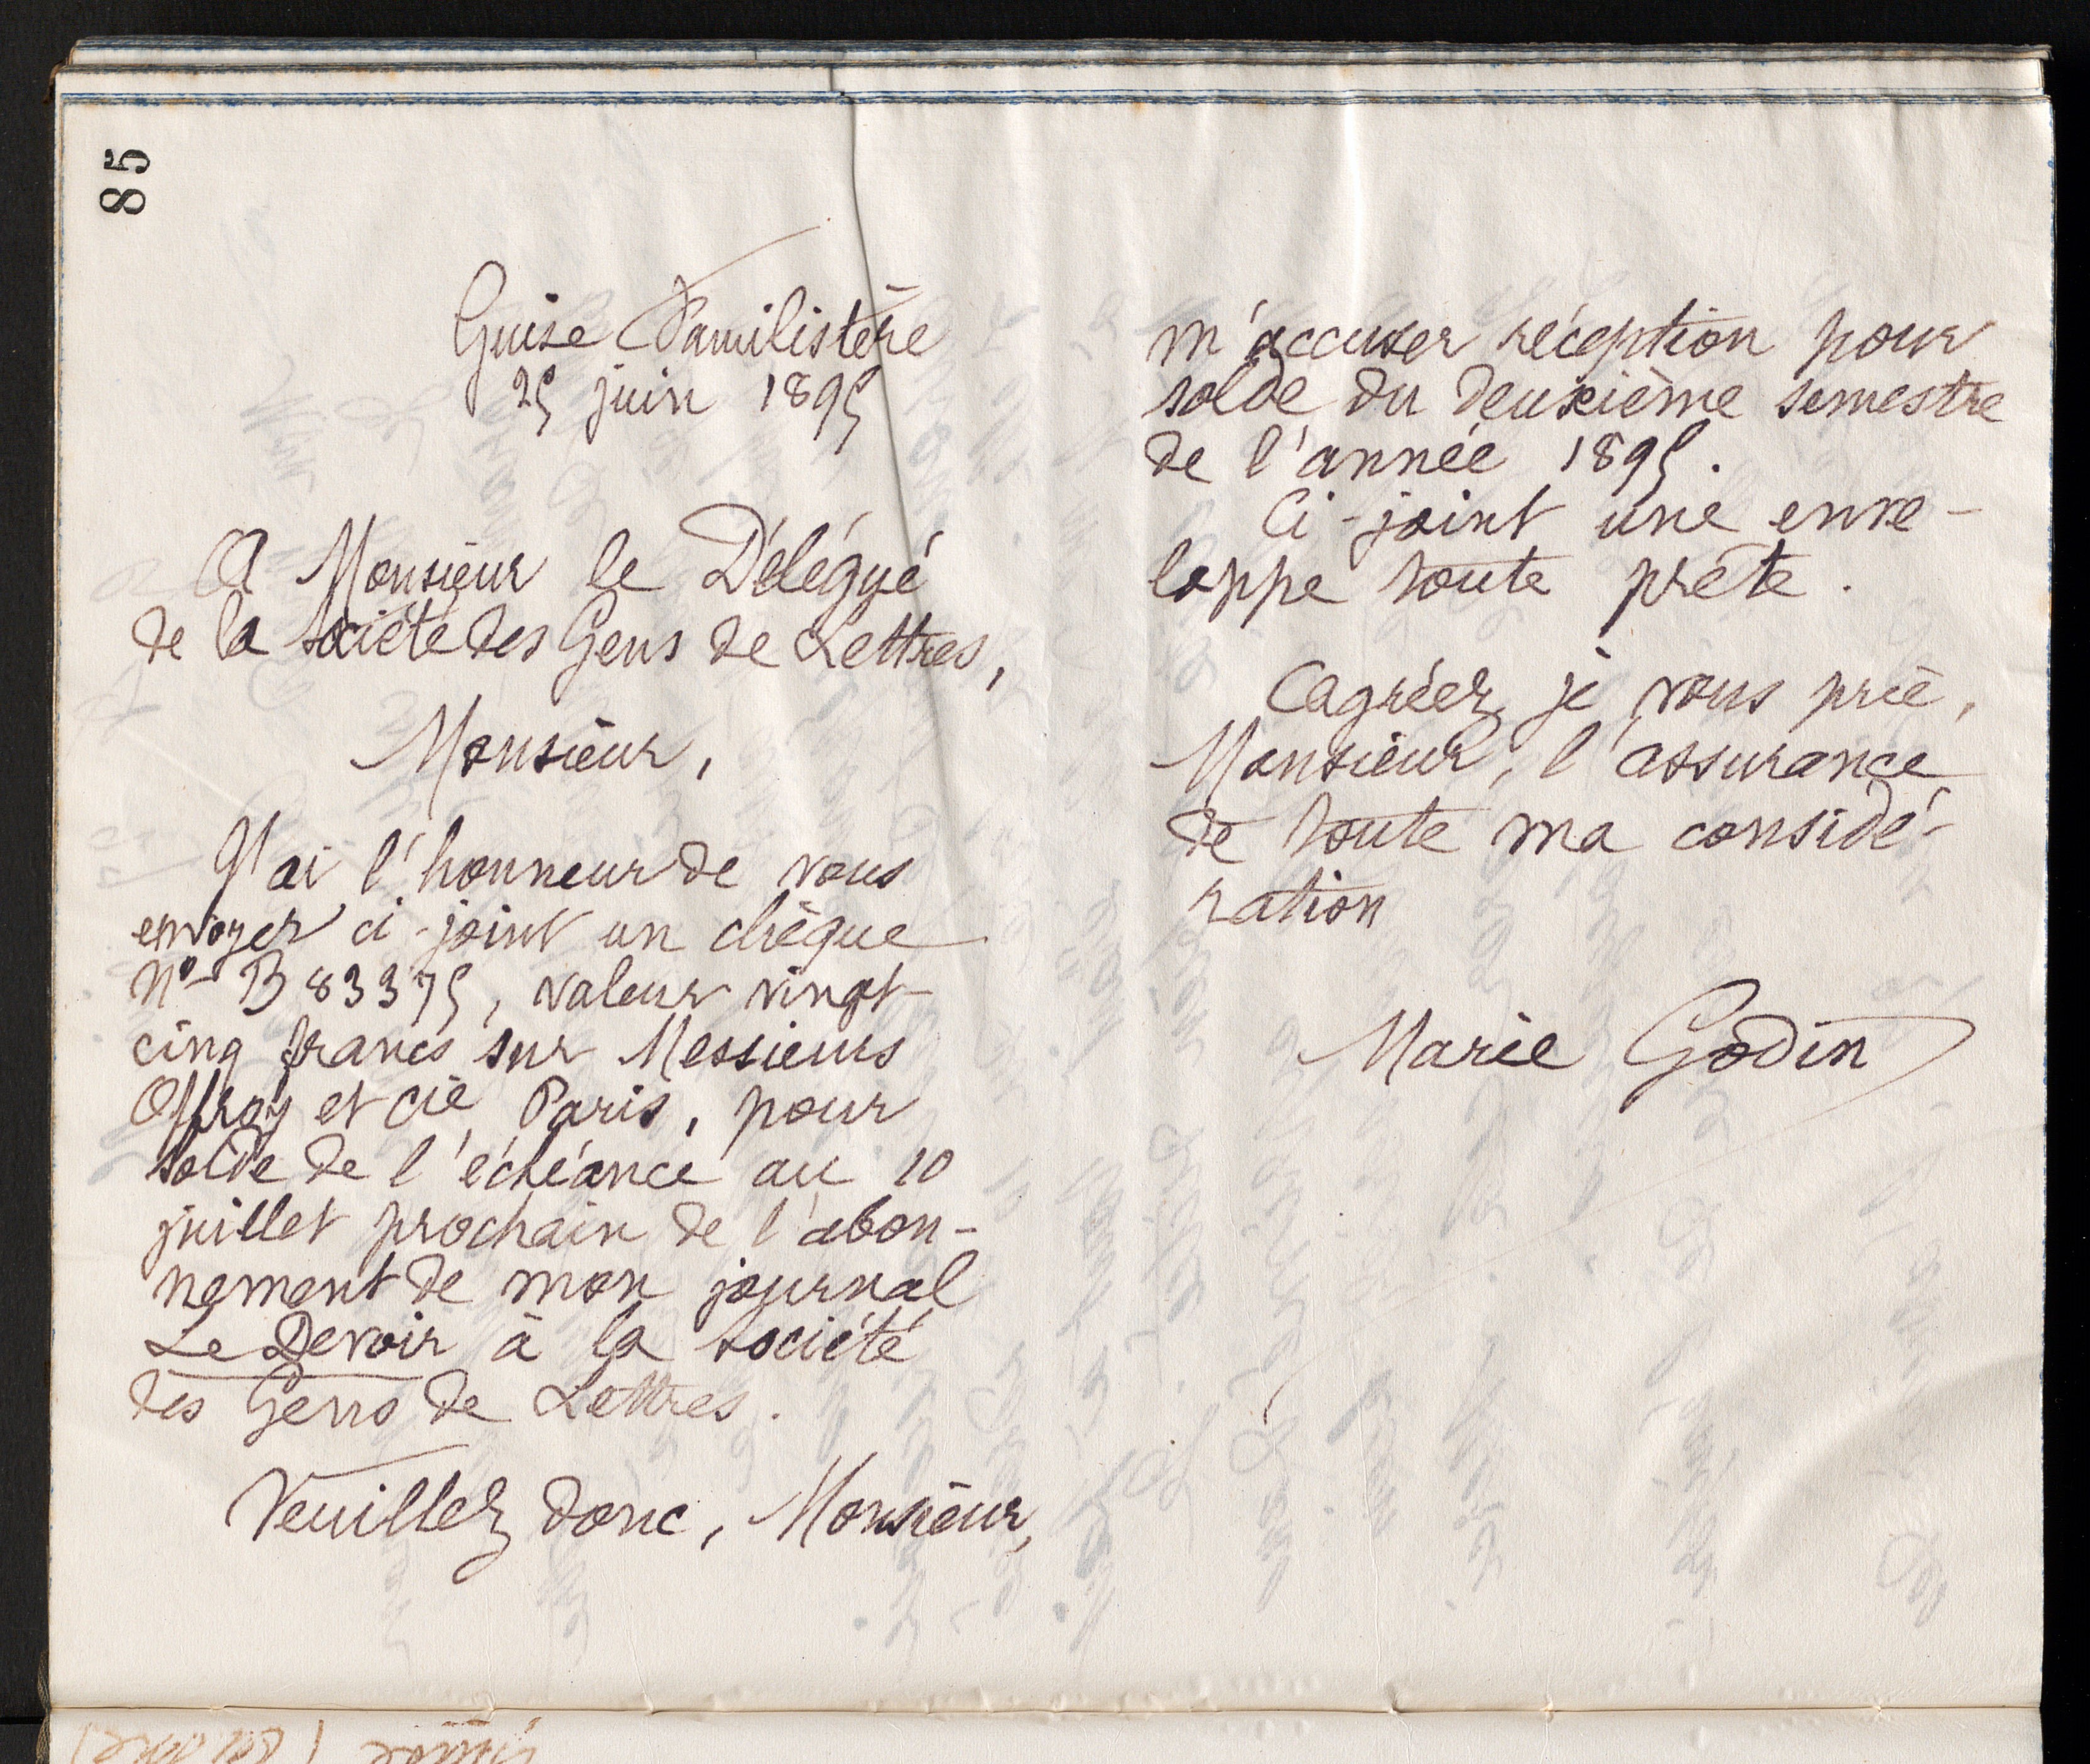 85
Guise Familistère
25 juin 1895
A Monsieur le Délégué
de la Société des Gens de Lettres,
Monsieur,
J'ai l'honneur de vous
envoyer ci-joint un chèque
N° B 83375, valeur vingt-
cinq francs sur Messieurs
Offroy et cie Paris, pour
solde de l'échéance au 10
juillet prochain de l'abon-
nement de mon journal
Le Devoir à la société
des Gens de Lettres.
Veuillez donc, Monsieur,
m'accuser réception pour
solde du deuxième semestre
de l'année 1895.
Ci-joint une enve-
loppe toute prête.
Agréez, je vous prie,
Monsieur, l'assurance
de toute ma considé-
ration
Marie Godin